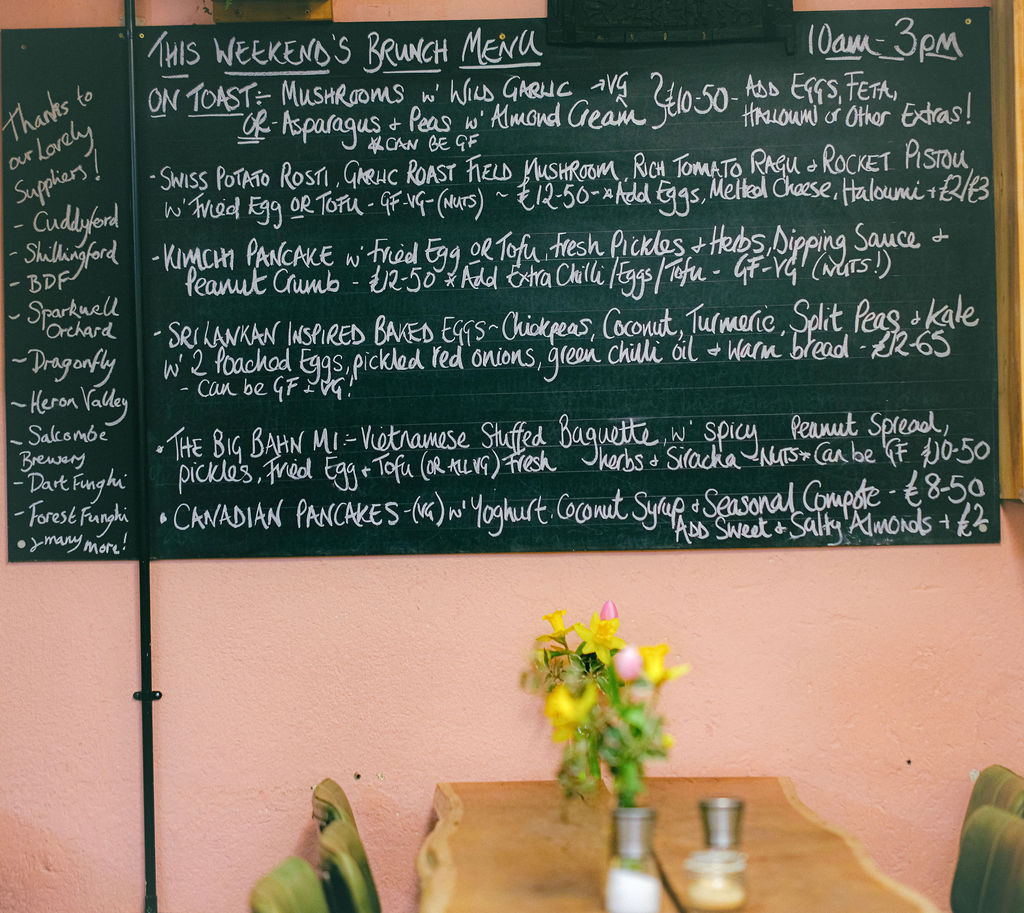 Thanks to
our Lovely
Suppliers!
- Cuddyford
- Shillingford
- BDF
- Sparkwell
Orchard
- Dragonfly
- Heron Valley
- Salcombe
Brewery
- Dart Funghi
- Forest Funghi
& many more!
THIS WEEKEND'S BRUNCH MENU 10am - 3pm
ON TOAST:- MUSHROOMS w' WILD GARLIC → VG } £10.50 - ADD EGGS, FETA,
OR - Asparagus + Peas w' Almond Cream HALLOUMI or Other Extras!
* CAN BE GF
- SWISS POTATO ROSTI, GARLIC ROAST FIELD MUSHROOM, RICH TOMATO RAGU + ROCKET PISTOU
w' Fried Egg OR TOFU - GF - VG - (NUTS) ~ £12-50 - * Add Eggs, Melted Cheese, Haloumi + £2/£3
- KIMCHI PANCAKE w' Fried Egg OR Tofu, Fresh Pickles + Herbs, Dipping Sauce +
Peanut Crumb - £12-50 * Add Extra Chilli/Eggs/Tofu - GF-VG (NUTS!)
- SRI LANKAN INSPIRED BAKED EGGS ~ Chickpeas, Coconut, Turmeric, Split Peas + Kale
w' 2 Poached Eggs, pickled red onions, green chilli oil + warm bread - £12-65
- Can be GF - VG!
• THE BIG BAHN MI :- Vietnamese Stuffed Baguette, w' spicy Peanut Spread,
pickles, Fried Egg + Tofu (OR ALL VG) Fresh herbs + Siracha NUTS * Can be GF £10-50
• CANADIAN PANCAKES - (VG) w' Yoghurt, Coconut Syrup + Seasonal Compote - £8-50
ADD Sweet + Salty Almonds + £2